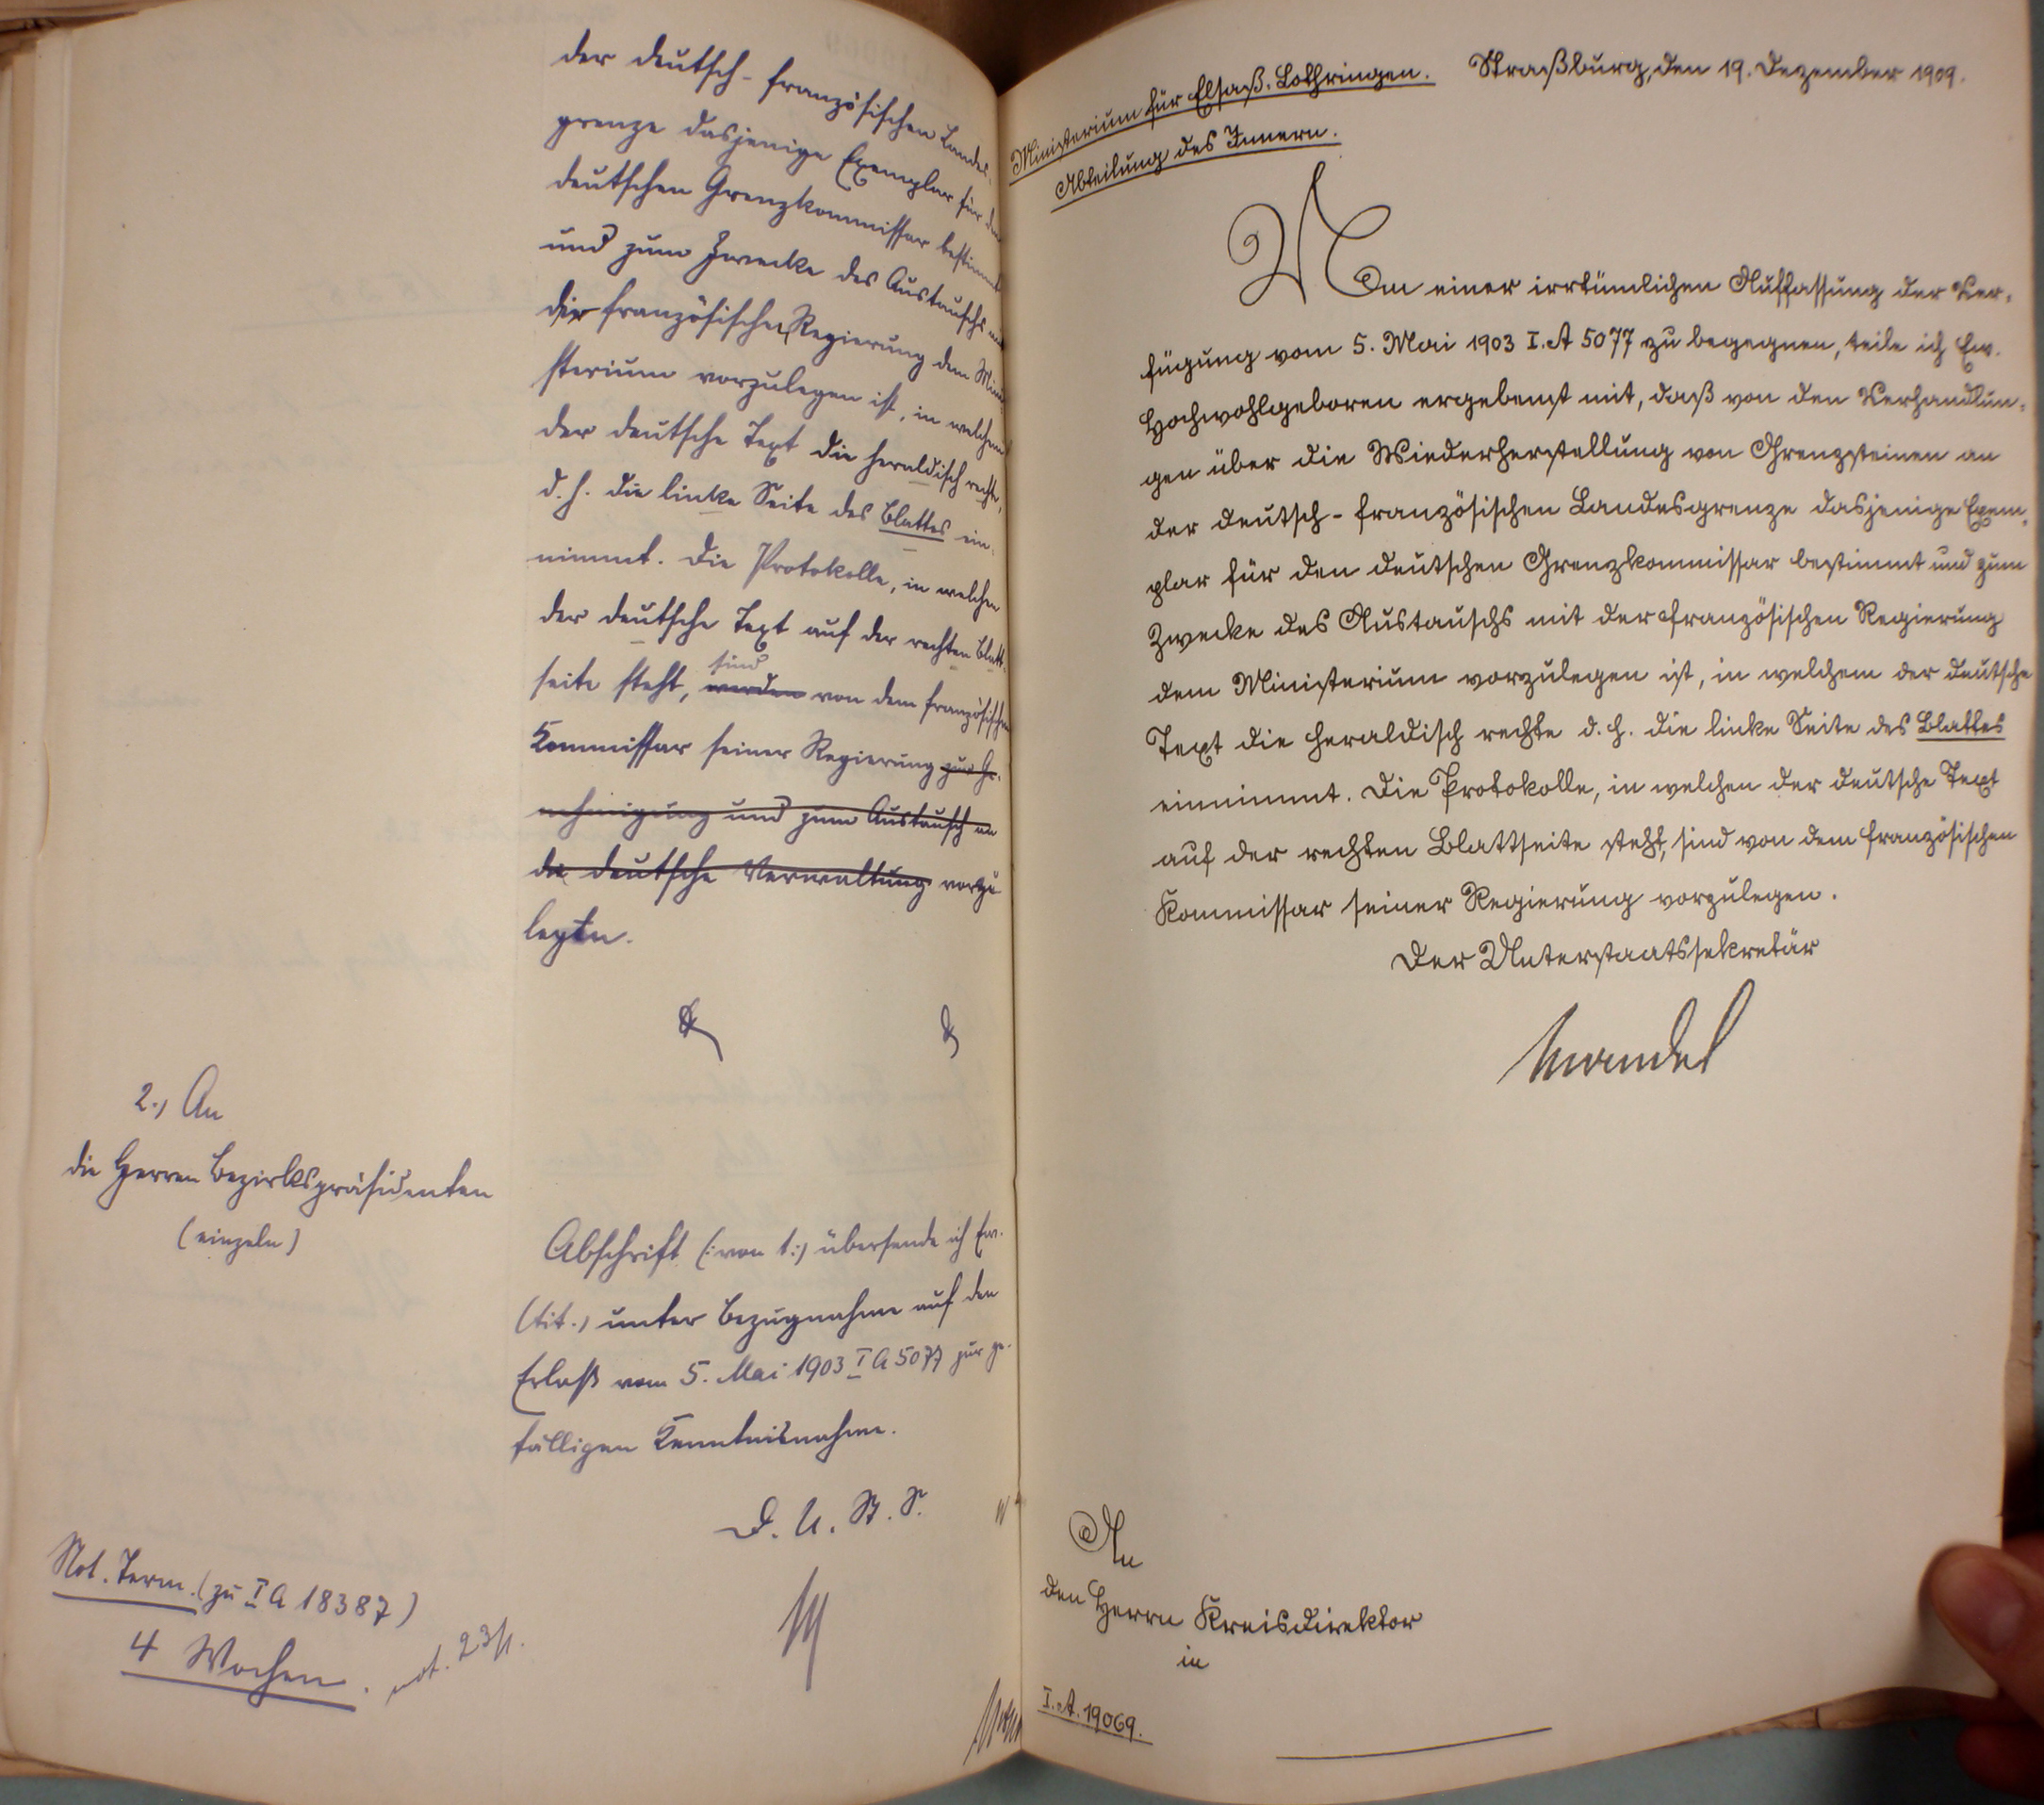 der deutsch-französischen Landes-
grenze dasjenige Exemplar für den
deutschen Grenzkommissar bestimmt
und zum Zwecke des Austauschs mit
der französischen Regierung dem Mini-
sterium vorzulegen ist, in welchem
der deutsche Text die heraldisch rechte,
d. h. die linke Seite des Blattes ein-
nimmt. Die Protokolle, in welchen
der deutsche Text auf der rechten Blatt-
sind
seite steht, werden von dem französischen
Kommissar seiner Regierung zur Ge-
nehmigung und zum Austausch an
die deutsche Verwaltung vorzu
legen.
2., An
die Herren Bezirkspräsidenten
(einzeln)
Abschrift (: von 1 :) übersende ich Ew.
(tit.) unter Bezugnahme auf den
Erlaß vom 5. Mai 1903 I A 5077 zur ge-
fälligen Kenntnisnahme.
D. U. St. S.
Not. Term. (zu I A 18387)
4 Wochen.
not. 23/1.
Ministerium für Elsaß-Lothringen.
Abteilung des Innern.
Straßburg, den 19. Dezember 1909.
Um einer irrtümlichen Auffassung der Ver-
fügung vom 5. Mai 1903 I. A 5077 zu begegnen, teile ich Ew.
Hochwohlgeboren ergebenst mit, daß von den Verhandlun-
gen über die Wiederherstellung von Grenzsteinen an
der deutsch-französischen Landesgrenze dasjenige Exem-
plar für den deutschen Grenzkommissar bestimmt und zum
Zwecke des Austauschs mit der französischen Regierung
dem Ministerium vorzulegen ist, in welchem der deutsche
Text die heraldisch rechte d. h. die linke Seite des Blattes
einnimmt. Die Protokolle, in welchen der deutsche Text
auf der rechten Blattseite steht, sind von dem französischen
Kommissar seiner Regierung vorzulegen.
Der Unterstaatssekretär
Mandel
An
den Herrn Kreisdirektor
in
I. A. 19069.